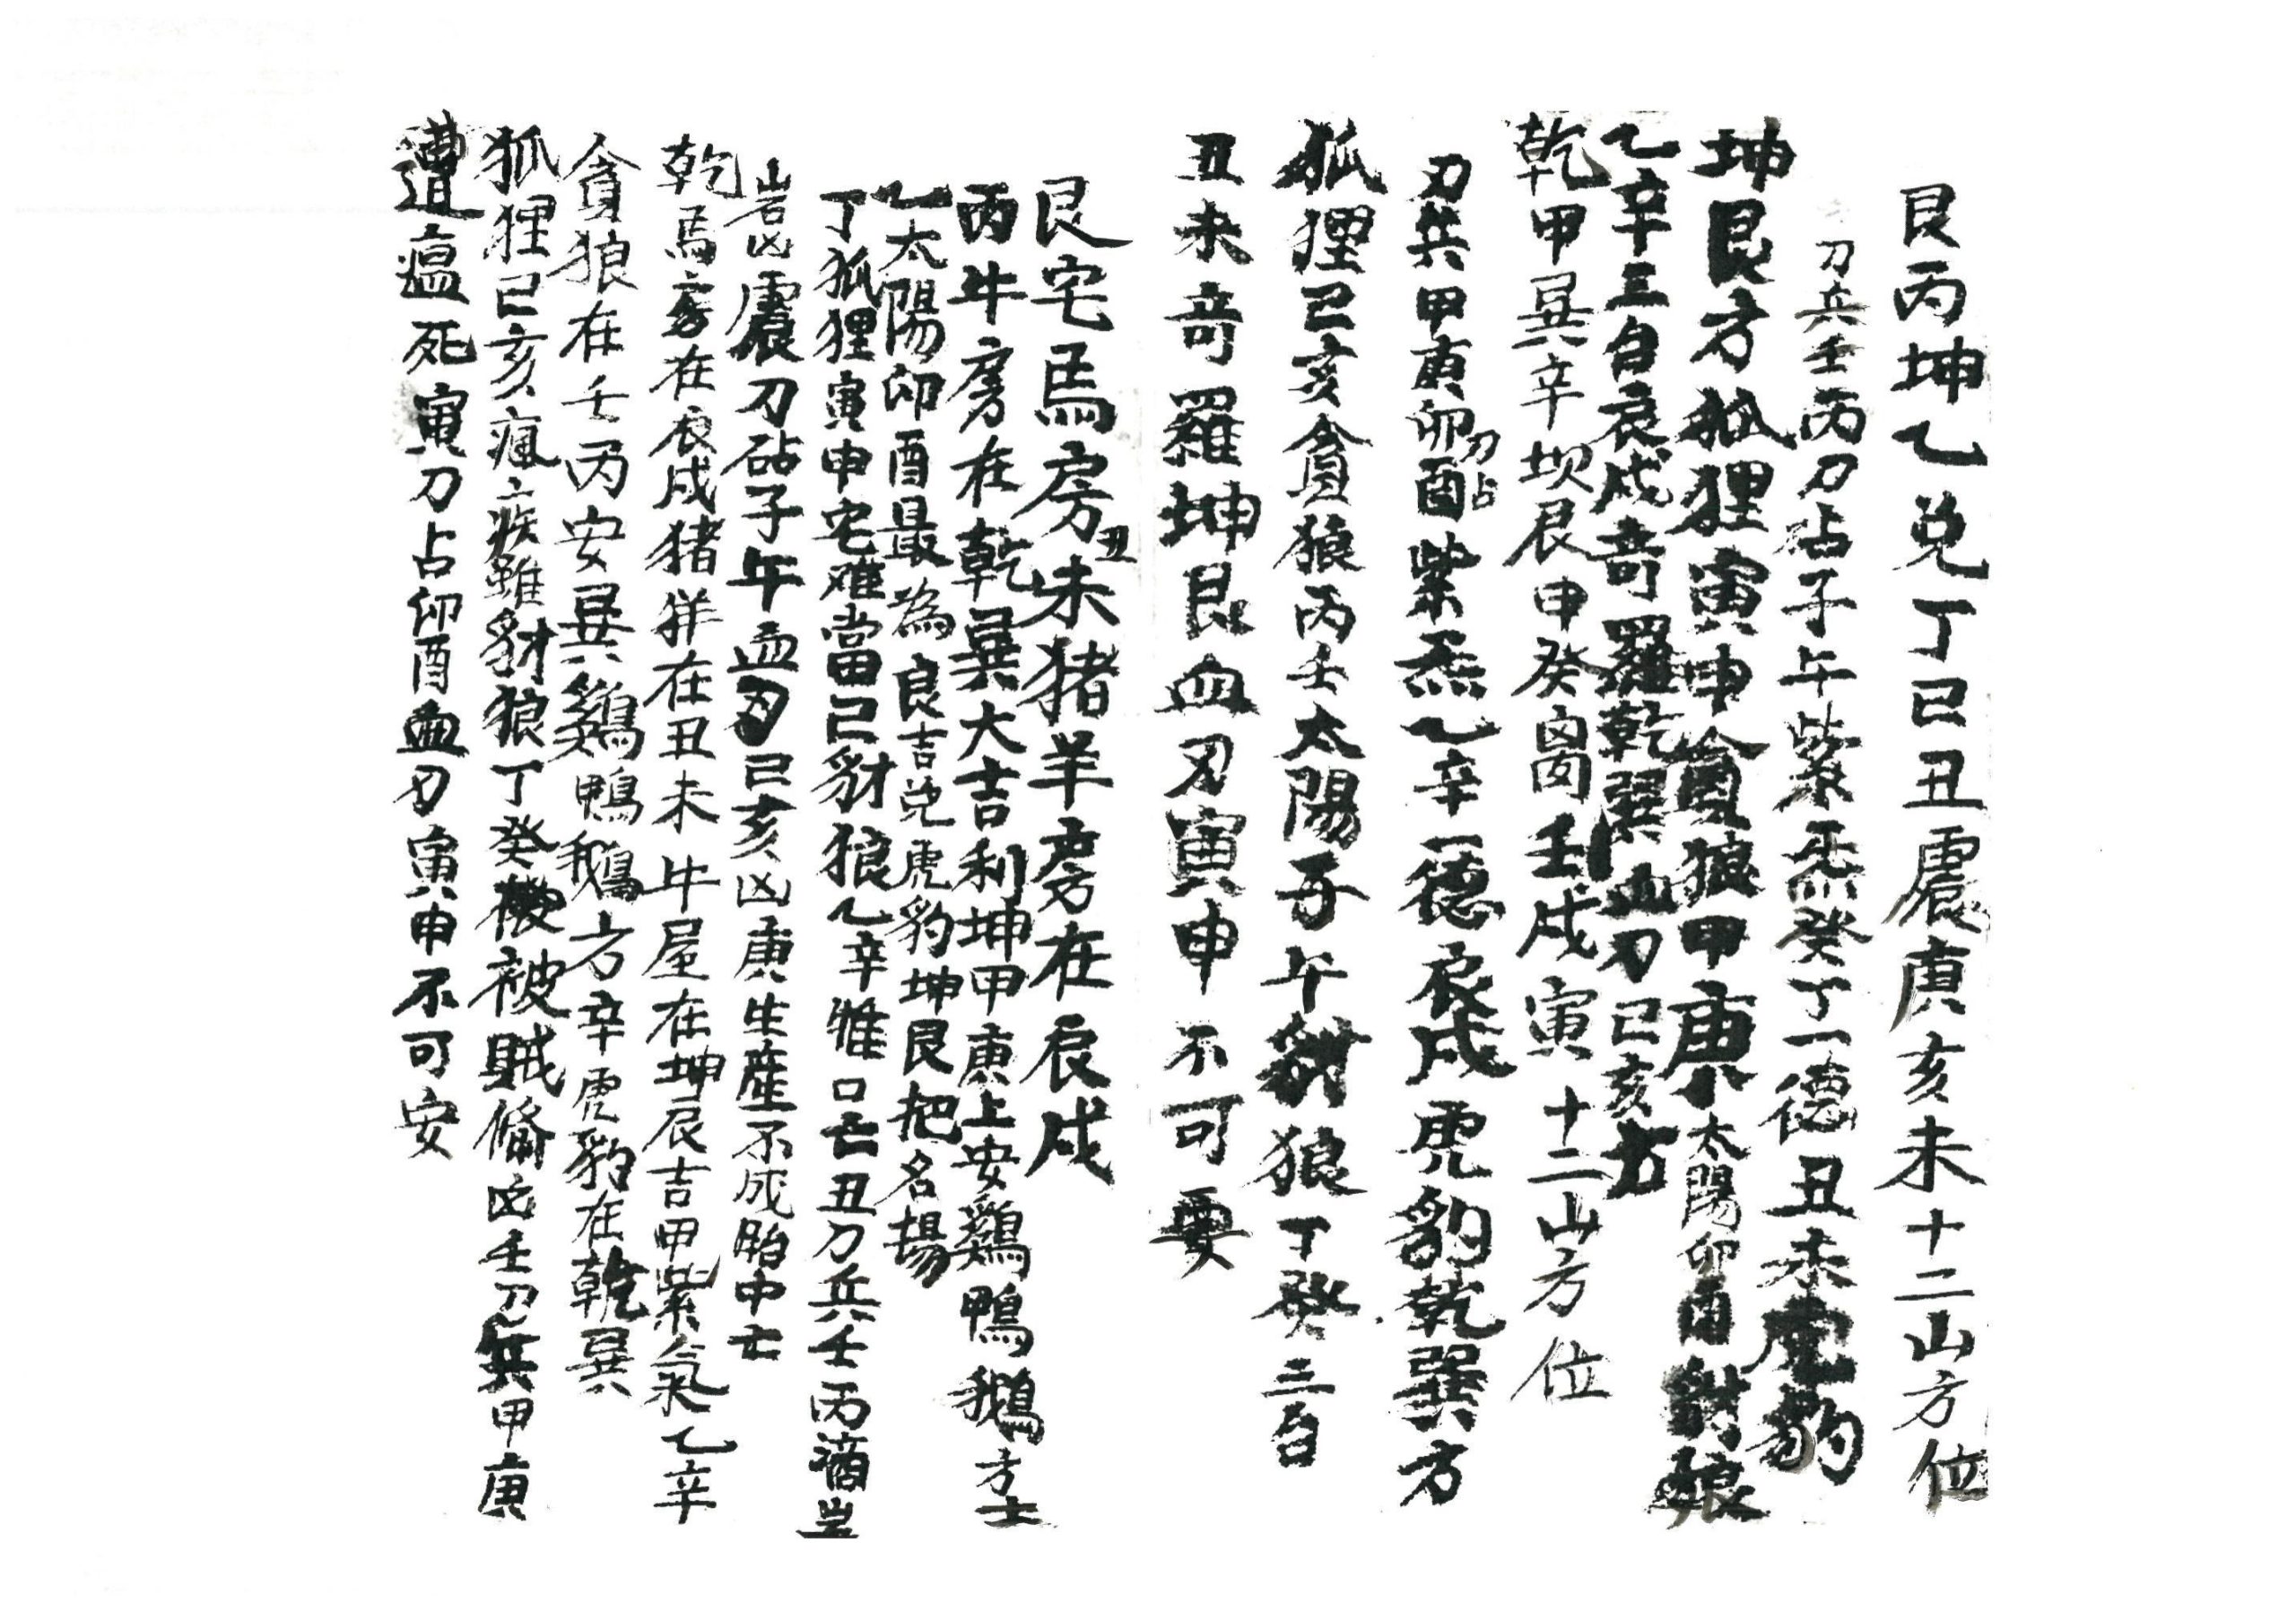 艮丙坤乙兌丁巳丑震庚亥未十二山方位
刀兵壬丙刀砧子午紫炁癸丁一德丑未虎豹
坤艮方狐狸寅申貪狼甲庚太陽卯酉豺狼
乙辛三台辰戌奇羅乾巽血刀己亥方
乾甲巽辛坎辰申癸离壬戌寅十二山方位
刃兵甲庚卯酉刀占紫炁乙辛一德辰戌虎豹乾巽方
狐狸己亥貪狼丙壬太陽子午豺狼丁癸三台
丑未奇羅坤艮血刃寅申不可要
艮宅馬房丑未猪羊房在辰戌
丙牛房在乾巽大吉利坤甲庚上安鷄鴨鵝方士
乙太陽卯酉最為良吉兌虎豹坤艮把名揚
丁狐狸寅申宅难當己豺狼乙辛惟口舌丑刀兵壬丙滴
岩凶震刀砧子午血刃己亥凶庚生產不成胎中亡
乾馬房在辰戌猪羊在丑未牛屋在坤艮吉甲紫氣乙辛
貪狼在壬丙安巽鷄鴨鵝方辛虎豹在乾巽
狐狸己亥瘋疾雖豺狼丁癸被賊偷凶壬刀兵甲庚
遭瘟死寅刀占卯酉血刃寅申不可安